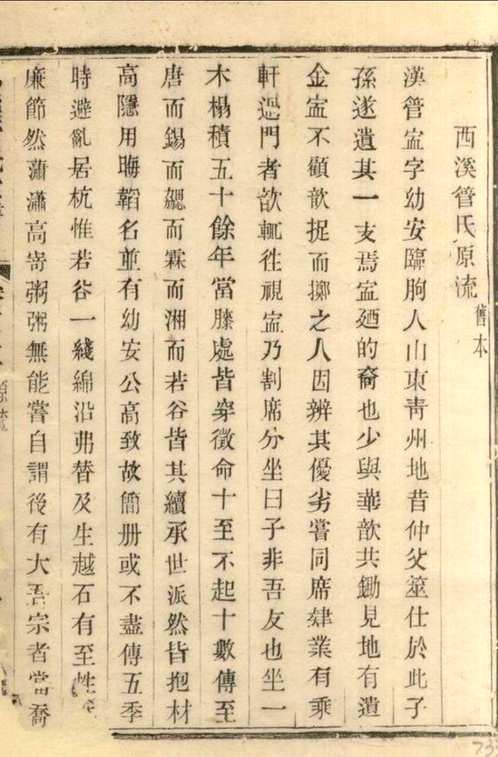 西溪管氏原流 舊本
漢管寍字幼安臨朐人山東靑州地昔仲父筮仕於此子
孫遂遺其一支焉寍廼的裔也少與華歆共鋤見地有遺
金寍不顧歆捉而擲之人因辨其優劣嘗同席肄業有乘
軒過門者歆輒徃視寍乃割席分坐曰子非吾友也坐一
木榻積五十餘年當膝處皆穿徵命十至不起十數傳至
唐而錫而勰而霖而湘而若谷皆其續承世派然皆抱材
高隱用晦韜名並有幼安公高致故簡册或不盡傳五季
時避亂居杭惟若谷一綫綿沿弗替及生越石有至性
廉節然瀟灑高寄粥粥無能嘗自謂後有大吾宗者當喬
733